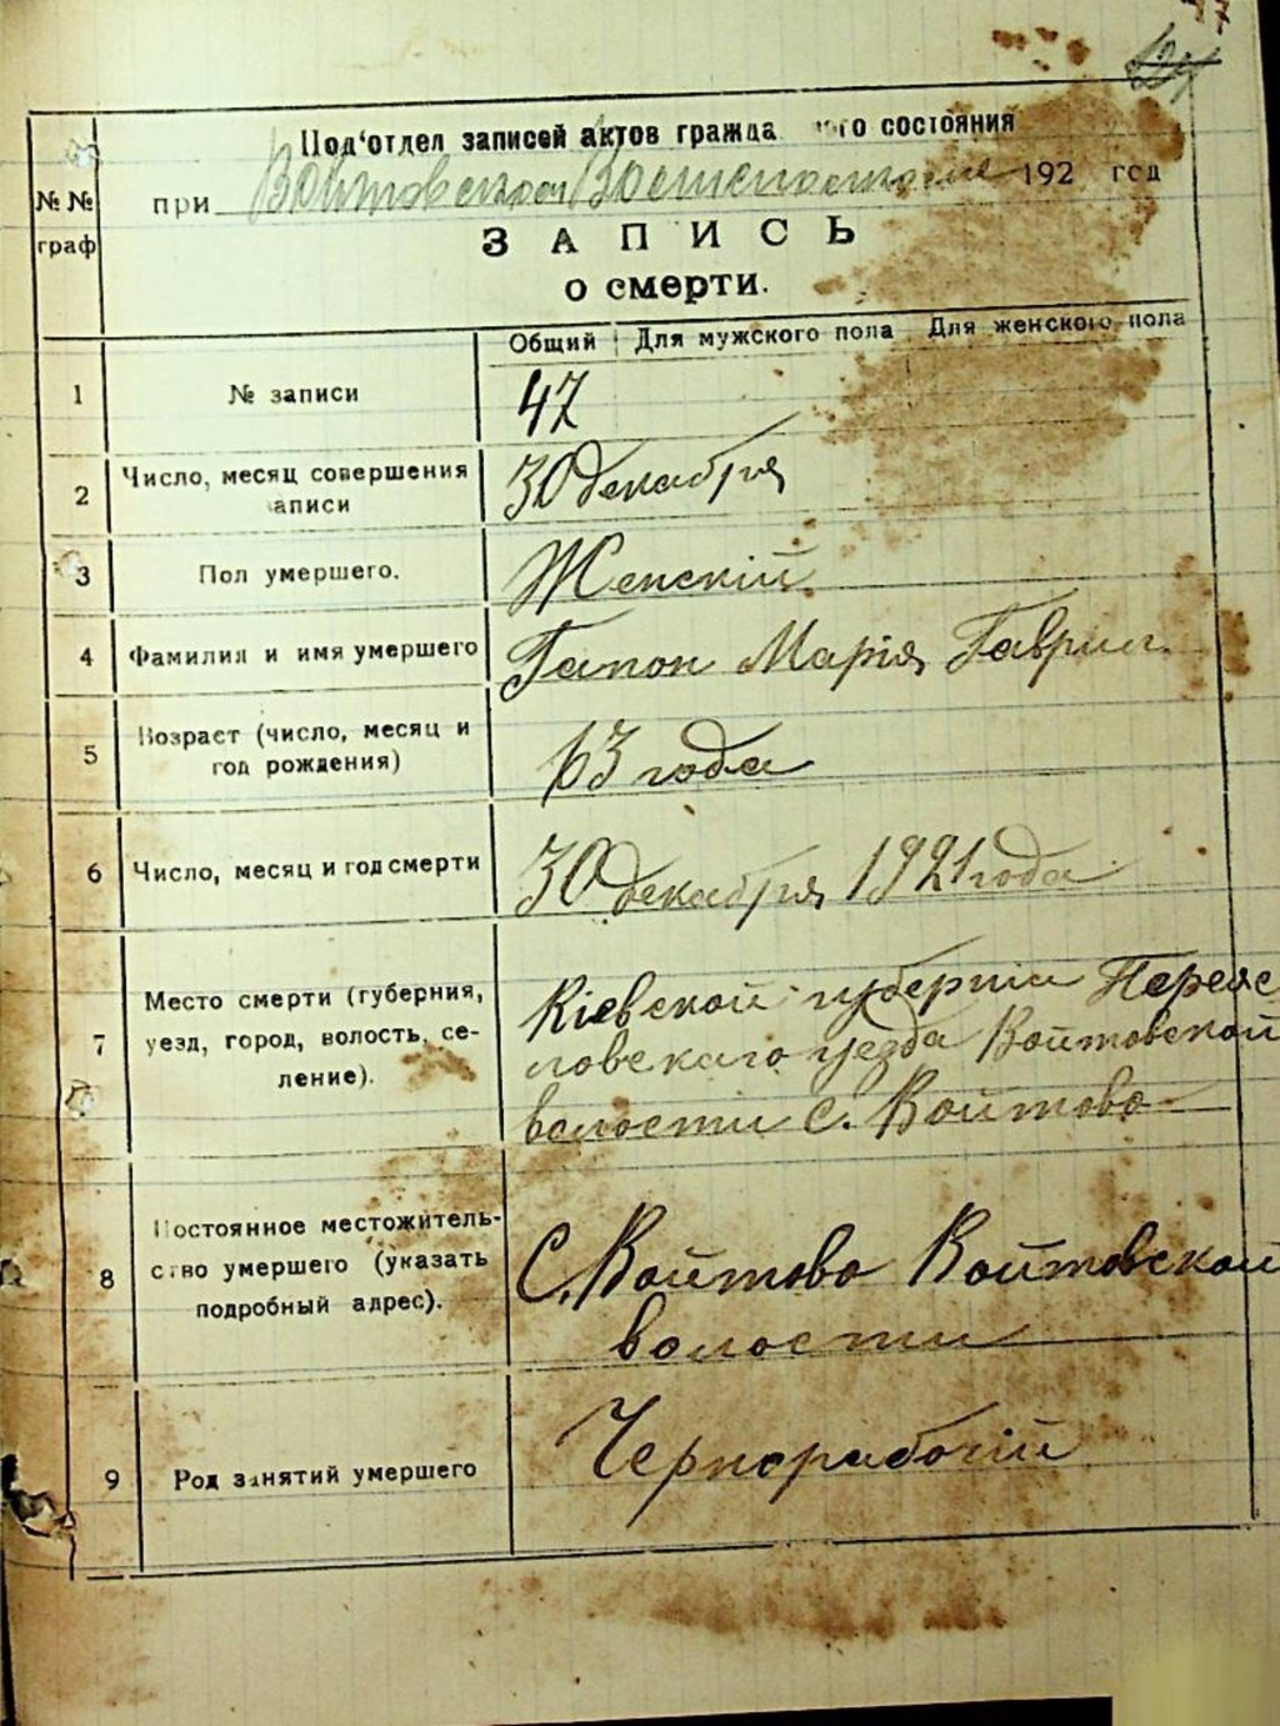 Под‘отдел записей актов гражда ого состояния
при Войтовской 192 год
№ №
граф
ЗАПИСЬ
о смерти.
Общий Для мужского пола Для женского пола
1 № записи 47
2 Число, месяц совершения аписи 30 декабря
3 Пол умершего. Женскій
4 Фамилия и имя умершего Гапон Марія Гаврил.
5 Возраст (число, месяц и год рождения) 63 года
6 Число, месяц и год смерти 30 декабря 1921 года
7 Место смерти (губерния, Кіевской губерніи Переяс
уезд, город, волость, се- ловскаго уезда Войтовской
ление). волости с. Войтово
8 Постоянное местожитель- С. Войтово Войтовской
ство умершего (указать волости
подробный адрес).
9 Род занятий умершего Чернорабочій